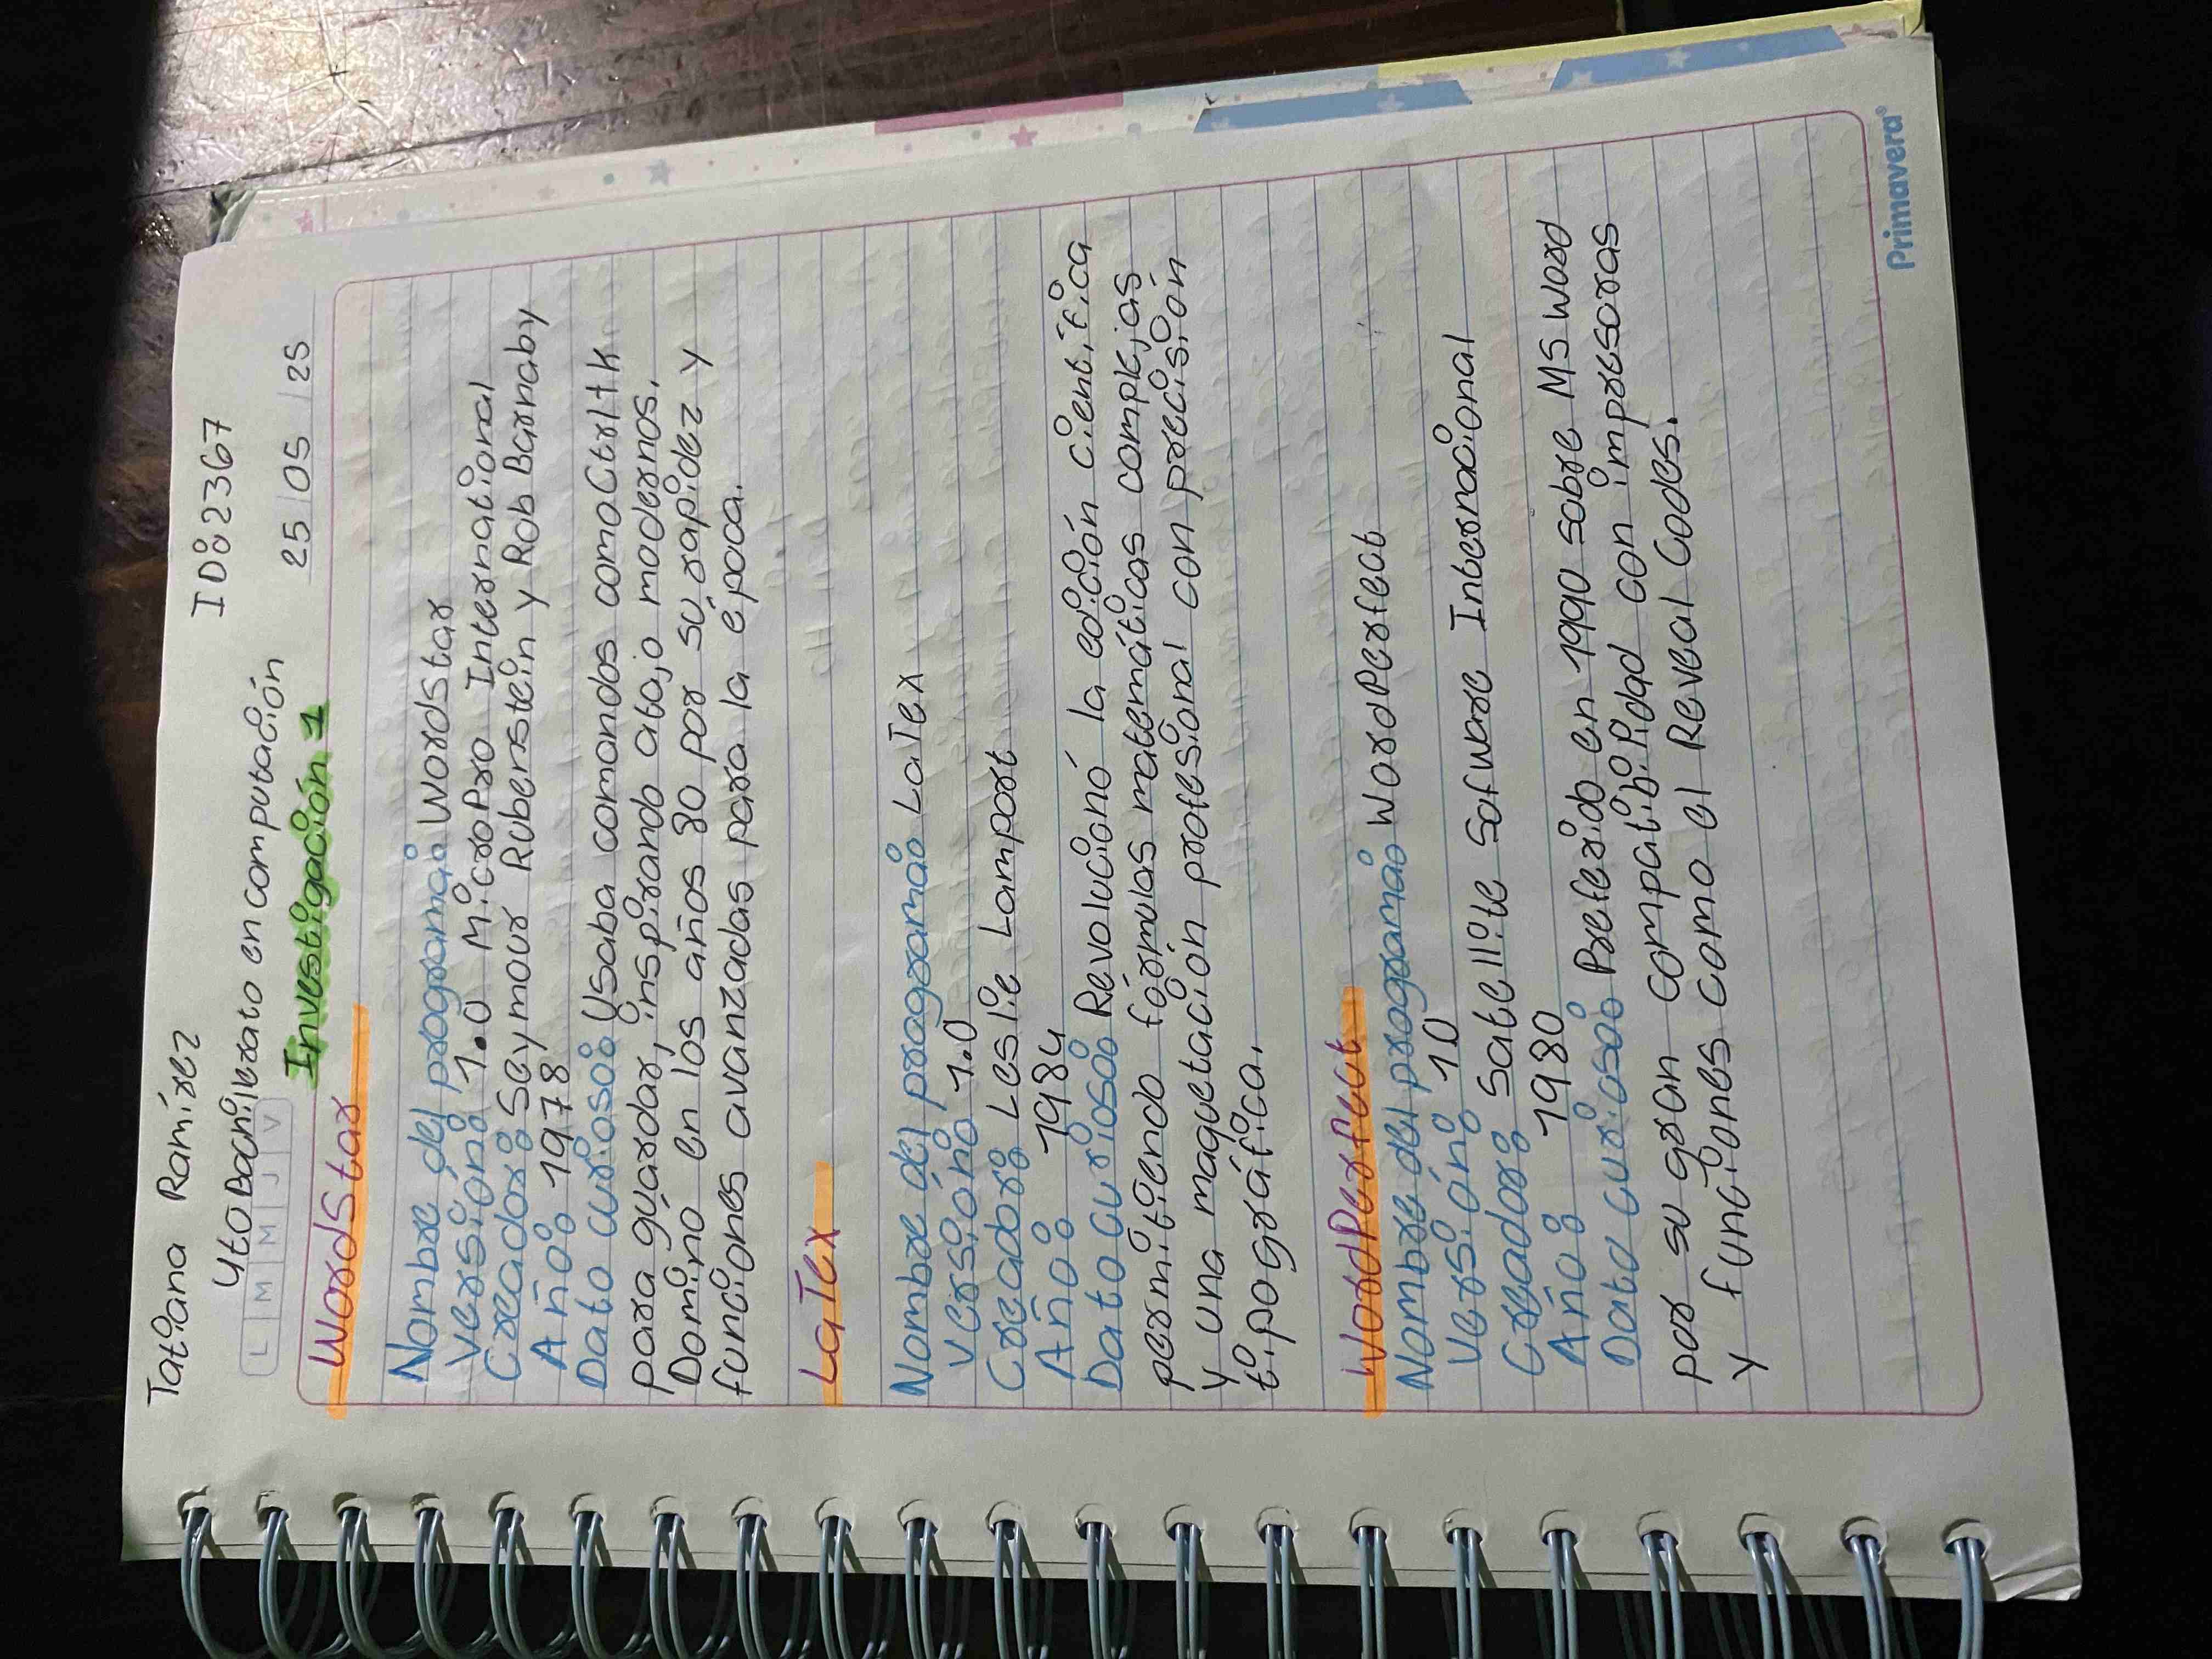 Tatiana Ramírez ID: 2367
4to Bachillerato en computación
L M M J V 25 05 25
Investigación 1
WordStar
Nombre del programa: WordStar
Versión: 1.0 MicroPro International
Creador: Seymour Rubenstein y Rob Barnaby
Año: 1978
Dato curioso: Usaba comandos como Ctrl+k
para guardar, inspirando atajo modernos.
Dominó en los años 80 por su rapidez y
funciones avanzadas para la época.
LaTex
Nombre del programa: LaTex
Versión: 1.0
Creador: Leslie Lamport
Año: 1984
Dato curioso: Revolucionó la edición científica
permitiendo fórmulas matemáticas complejas
y una maquetación profesional con precisión
tipográfica.
WordPerfect
Nombre del programa: WordPerfect
Versión: 1.0
Creador: Satellite Sofware Internacional
Año: 1980
Dato curioso: Preferido en 1990 sobre MS Word
por su gran compatibilidad con impresoras
y funciones como el Reveal Codes.
Primavera®